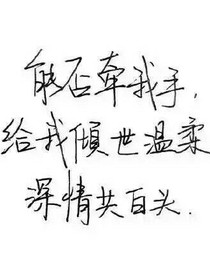 能否牵我手,
给我倾世温柔
深情共白头.